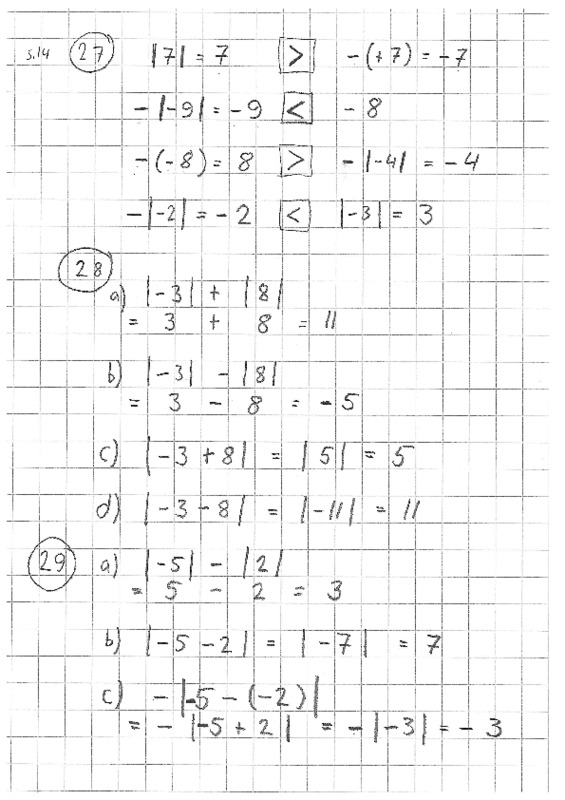 s.14 27 |7| = 7 > -(+7) = -7
-|-9| = -9 < -8
-(-8) = 8 > -|-4| = -4
-|-2| = -2 < |-3| = 3
28
a) |-3| + |8|
= 3 + 8 = 11
b) |-3| - |8|
= 3 - 8 = -5
c) |-3+8| = |5| = 5
d) |-3-8| = |-11| = 11
29 a) |-5| - |2|
= 5 - 2 = 3
b) |-5-2| = |-7| = 7
c) -|-5-(-2)|
= -|-5+2| = -|-3| = -3